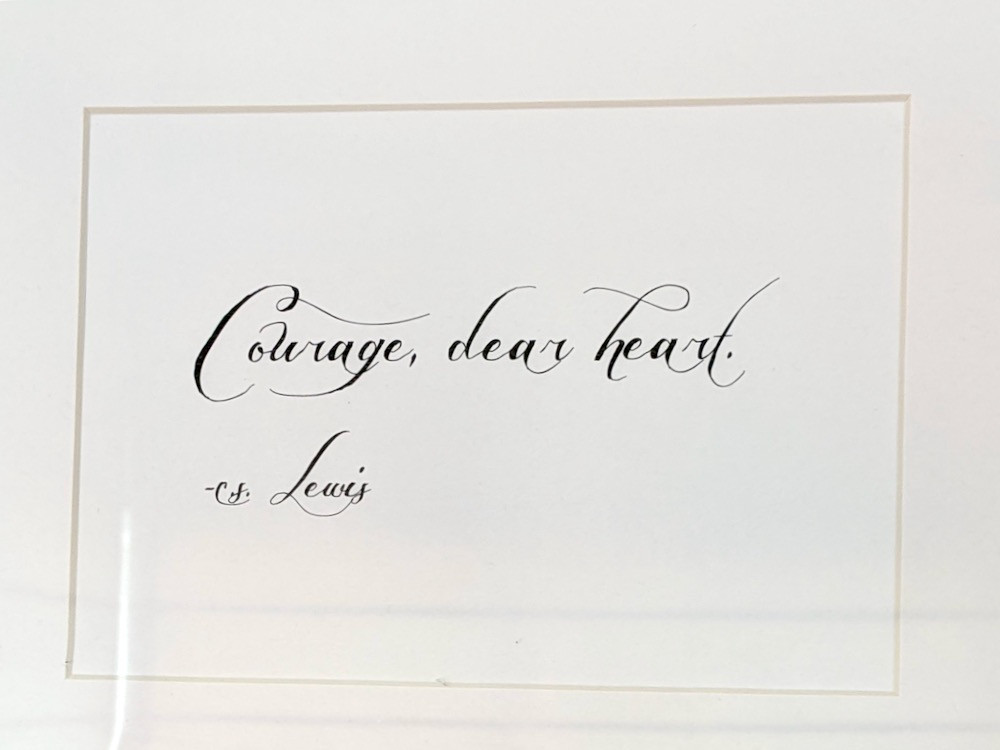 Courage, dear heart.
-C.S. Lewis